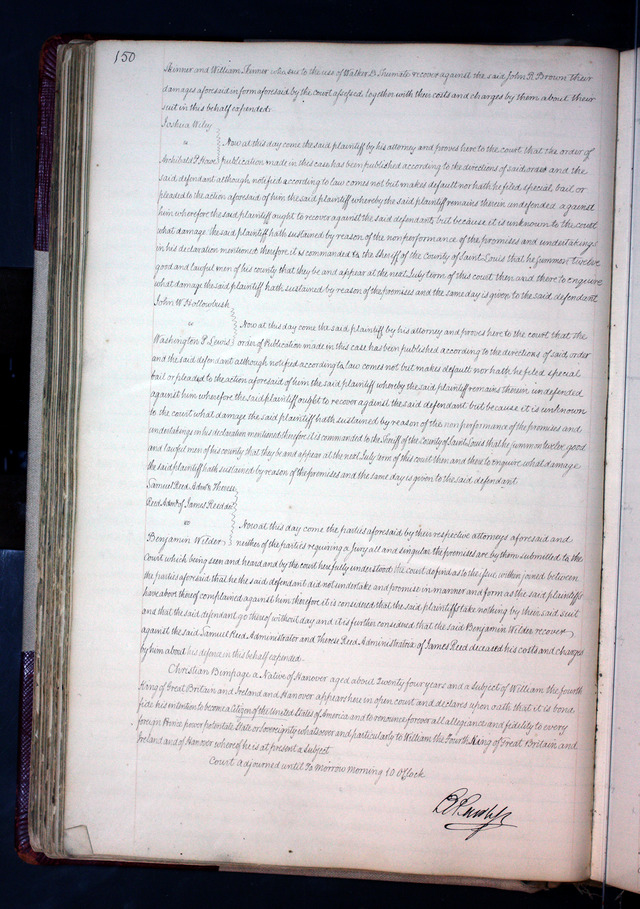 150
Skinner and William Skinner who sue to the use of Walker D. Shumate recover against the said John R. Brown their
damages aforesaid in form aforesaid by the court assessed, together with their costs and charges by them about their
suit in this behalf expended.
Joshua Wiley
vs Now at this day come the said plaintiff by his attorney and proves here to the court that the order of
Archibald P. publication made in this case has been published according to the directions of said order and the
said defendant although notified according to law comes not but makes default nor hath he filed special bail or
pleaded to the action aforesaid of him the said plaintiff whereby the said plaintiff remains therein undefended against
him wherefore the said plaintiff ought to recover against the said defendant, but because it is unknown to the court
what damage the said plaintiff hath sustained by reason of the nonperformance of the promises and undertakings
in his declaration mentioned therefore it is commanded to the Sheriff of the County of Saint Louis that he summon twelve
good and lawful men of his county that they be and appear at the next July term of this court then and there to enquire
what damage the said plaintiff hath sustained by reason of the premises and the same day is given to the said defendant
John W Hollowbush
vs Now at this day come the said plaintiff by his attorney and proves here to the court that the
Washington P. Lewis order of Publication made in this case has been published according to the directions of said order
and the said defendant although notified according to law comes not but makes default nor hath he filed special
bail or pleaded to the action aforesaid of him the said plaintiff whereby the said plaintiff remains therein undefended
against him wherefore the said plaintiff ought to recover against the said defendant but because it is unknown
to the court what damage the said plaintiff hath sustained by reason of the nonperformance of the promises and
undertakings in his declaration mentioned, therefore it is commanded to the Sheriff of the County of Saint Louis that he summon twelve good
and lawful men of his county that they be and appear at the next July term of this court then and there to enquire what damage
the said plaintiff hath sustained by reason of the premises and the same day is given to the said defendant.
Samuel Reed Admr & Therese
Reed Admx of James Reed decd
vs Now at this day come the parties aforesaid by their respective attorneys aforesaid and
Benjamin Wilder neither of the parties requiring a Jury all and singular the premises are by them submitted to the
Court which being seen and heard and by the court here fully understood the court do find as to the issue within joined between
the parties aforesaid that he the said defendant did not undertake and promise in manner and form as the said plaintiffs
have above thereof complained against him therefore it is considered that the said plaintiffs take nothing by their said suit
and that the said defendant go thereof without day and it is further considered that the said Benjamin Wilder recover
against the said Samuel Reed Administrator and Therese Reed Administratrix of James Reed deceased his costs and charges
by him about his defence in this behalf expended.
Christian Bimpage a Native of Hanover aged about Twenty four years and a Subject of William the fourth
King of Great Britain and Ireland and Hanover appears here in open court and declares upon oath that it is bona
fide his intention to become a Citizen of the United States of America and to renounce forever all allegiance and fidelity to every
foreign Prince power potentate State or Sovereignty whatsoever and particularly to William the Fourth King of Great Britain and
Ireland and of Hanover whereof he is at present a Subject
Court adjourned until To morrow morning 10 O'Clock